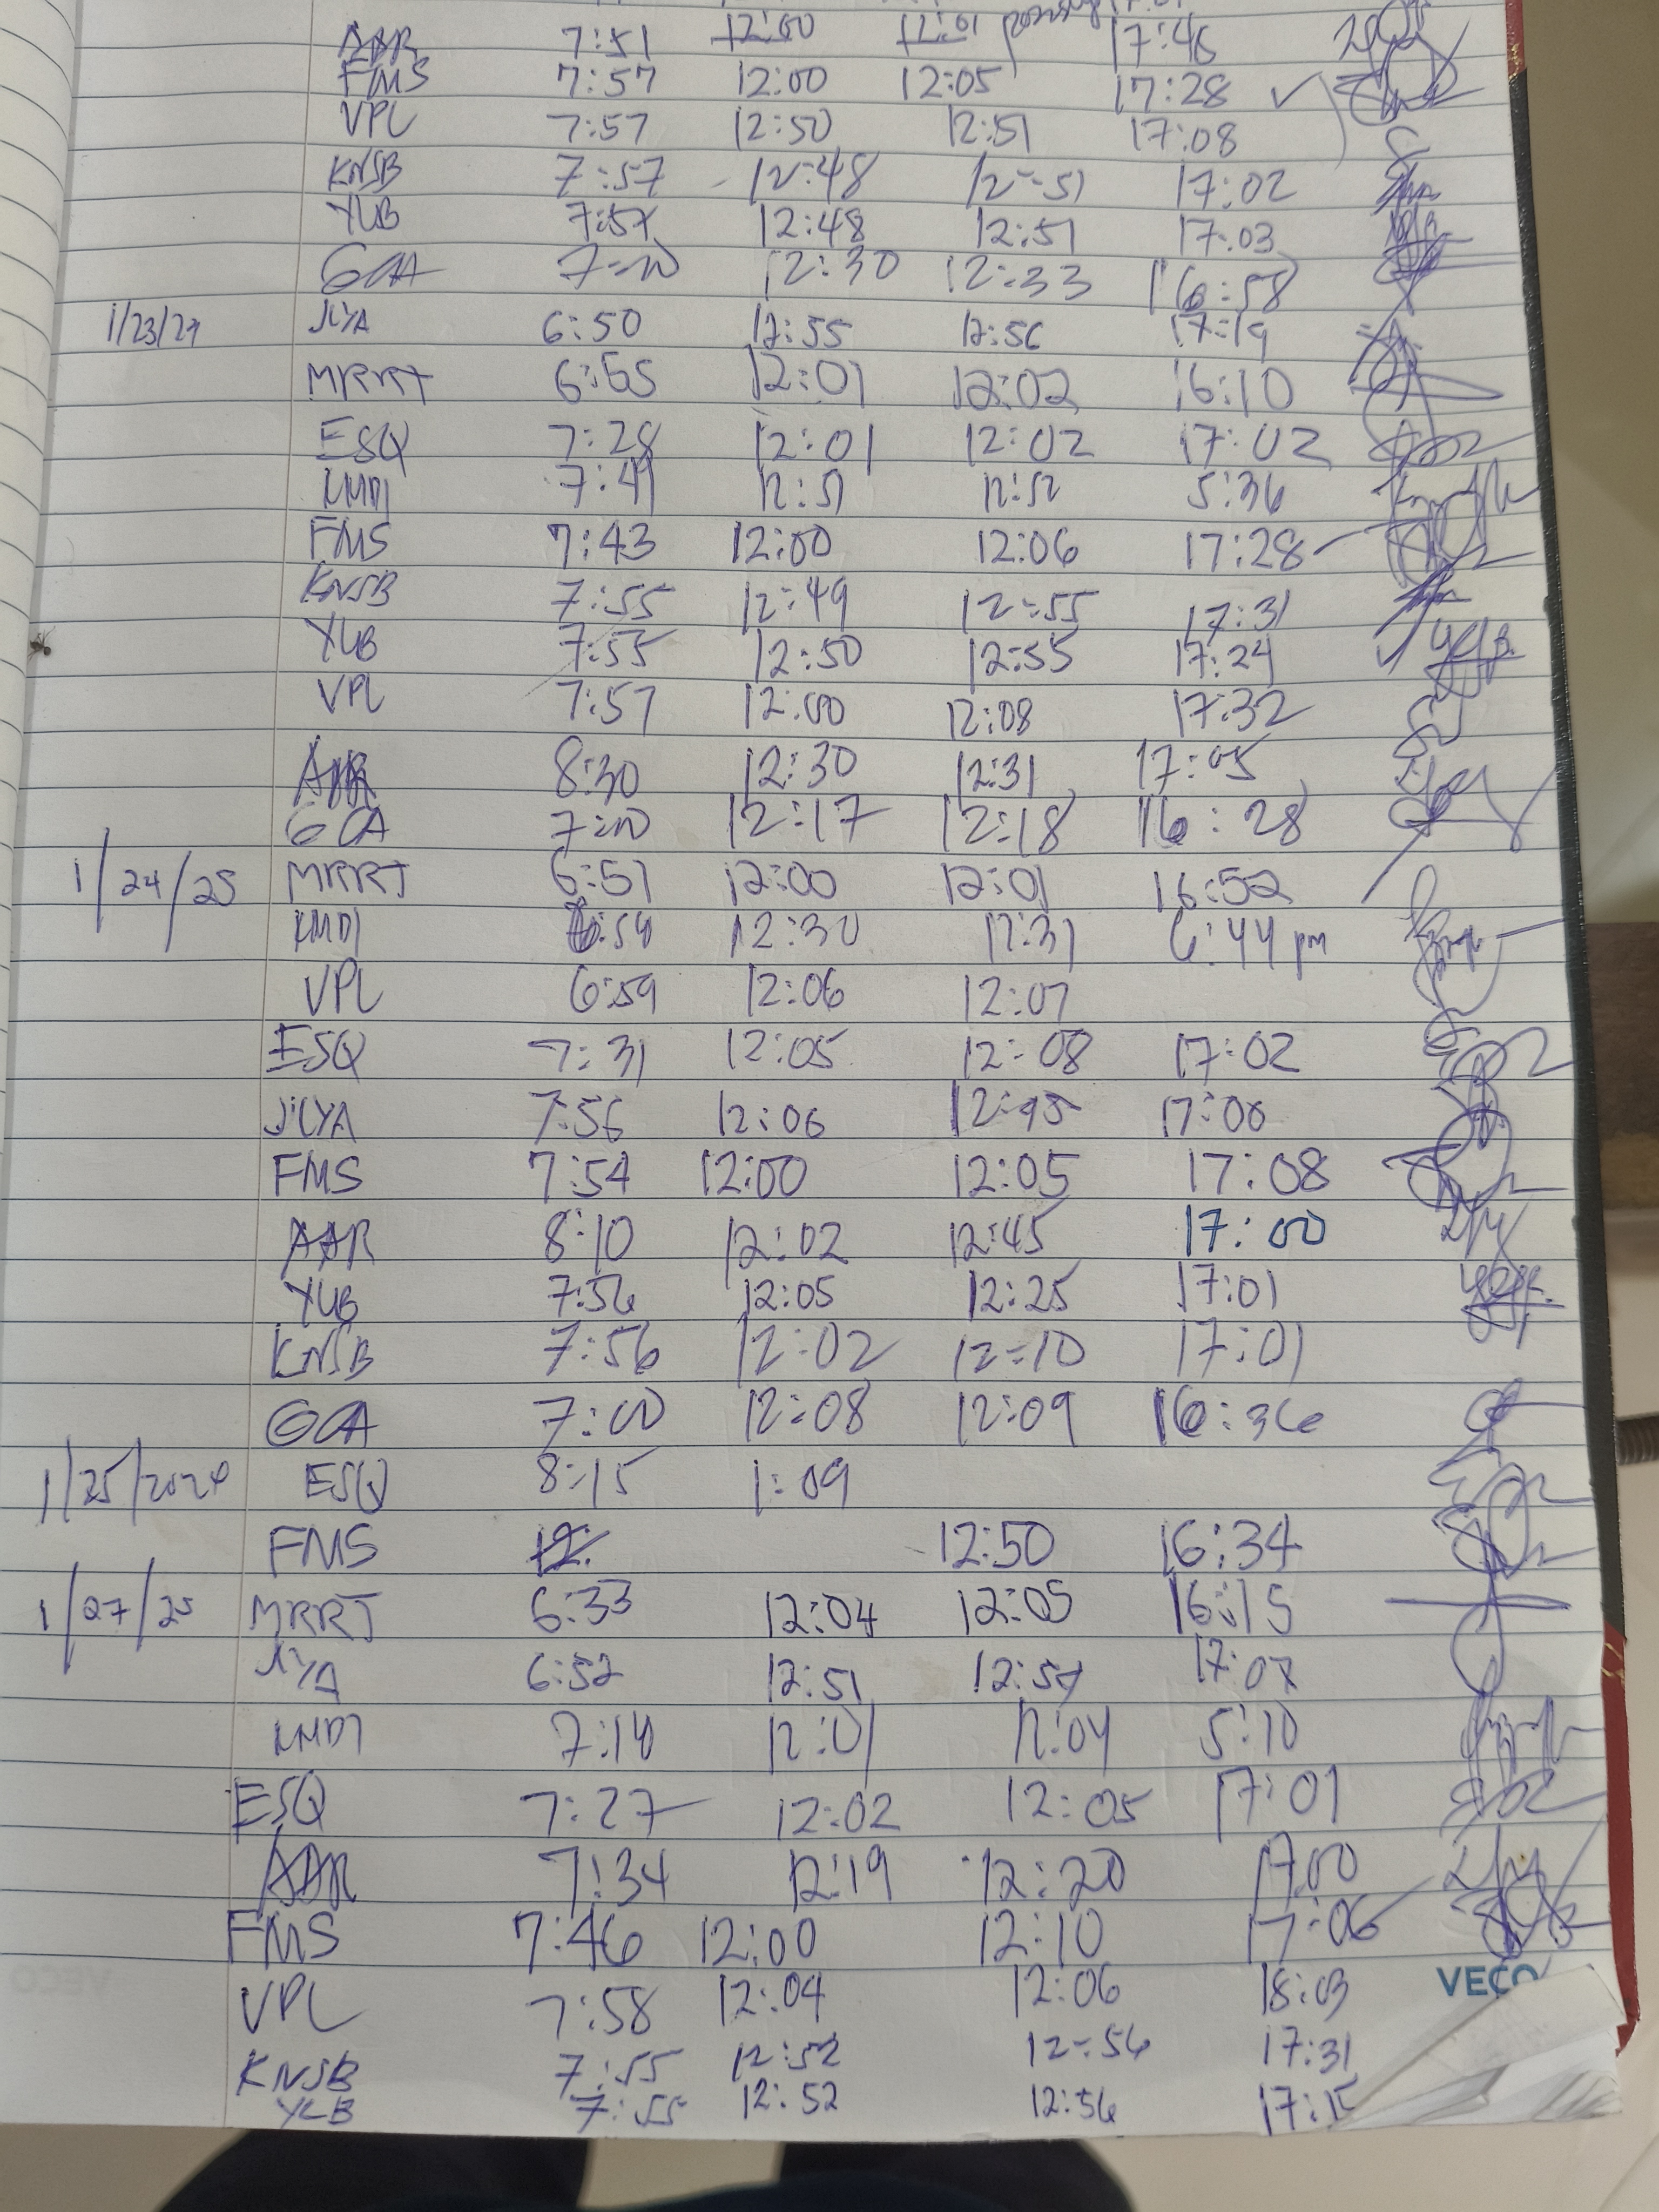 AAR 7:51 12:00 12:01 17:46
FMS 7:57 12:00 12:05 17:28 ✓
VPL 7:57 12:50 12:51 17:08
KNSB 7:57 12:48 12:51 17:02
YLB 7:57 12:48 12:51 17:03
GCA 7:00 12:30 12:33 16:58
1/23/24 JLYA 6:50 12:55 12:56 17:19
MRRT 6:55 12:01 12:02 16:10
ESQ 7:28 12:01 12:02 17:02
KMDT 7:49 12:51 12:52 5:36
FMS 7:43 12:00 12:06 17:28
KNSB 7:55 12:49 12:55 17:31
YLB 7:55 12:50 12:55 17:24
VPL 7:57 12:00 12:08 17:32
AAR 8:30 12:30 12:31 17:05
GCA 7:00 12:17 12:18 16:28
1/24/25 MRRT 6:51 12:00 12:01 16:52
KMDT 6:54 12:30 12:31 6:44 pm
VPL 6:59 12:06 12:07
ESQ 7:31 12:05 12:08 17:02
JLYA 7:56 12:06 12:45 17:00
FMS 7:54 12:00 12:05 17:08
AAR 8:10 12:02 12:45 17:00
YLB 7:56 12:05 12:25 17:01
KNSB 7:56 12:02 12:10 17:01
GCA 7:00 12:08 12:09 16:36
1/25/2024 ESQ 8:15 1:09
FMS 12: 12:50 16:34
1/27/25 MRRT 6:33 12:04 12:05 16:15
JLYA 6:52 12:51 12:54 17:07
KMDT 7:14 12:01 12:04 5:10
ESQ 7:27 12:02 12:05 17:01
AAR 7:34 12:19 12:20 17:00
FMS 7:46 12:00 12:10 17:06
VPL 7:58 12:04 12:06 18:03
VECO
KNSB 7:55 12:52 12:56 17:31
YLB 7:55 12:52 12:56 17:15